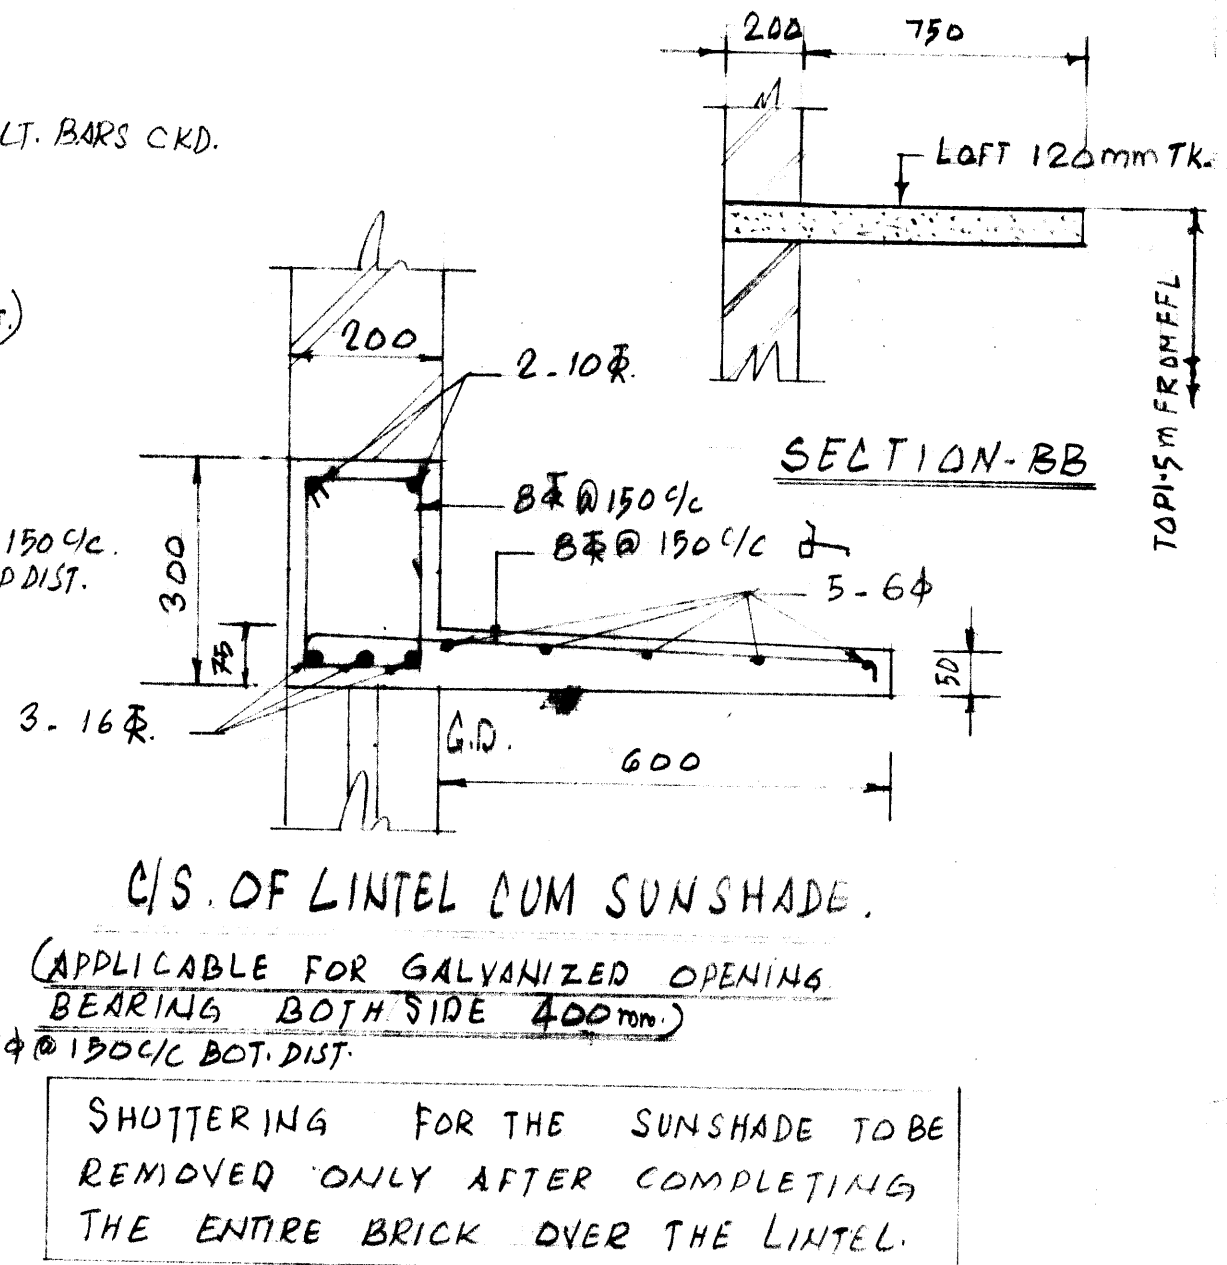 200 750
LT. BARS CKD.
LOFT 120mm TK.
200
2-10Φ.
TOP 1.5m FROM FFL
SECTION-BB
8Φ@150 c/c
150 c/c.
8Φ@ 150 c/c
DIST.
300
5-6ϕ
75
50
3-16Φ.
G.D.
600
C/S. OF LINTEL CUM SUNSHADE.
(APPLICABLE FOR GALVANIZED OPENING
BEARING BOTH SIDE 400mm.)
ϕ@150C/C BOT. DIST.
SHUTTERING FOR THE SUNSHADE TO BE
REMOVED ONLY AFTER COMPLETING
THE ENTIRE BRICK OVER THE LINTEL.